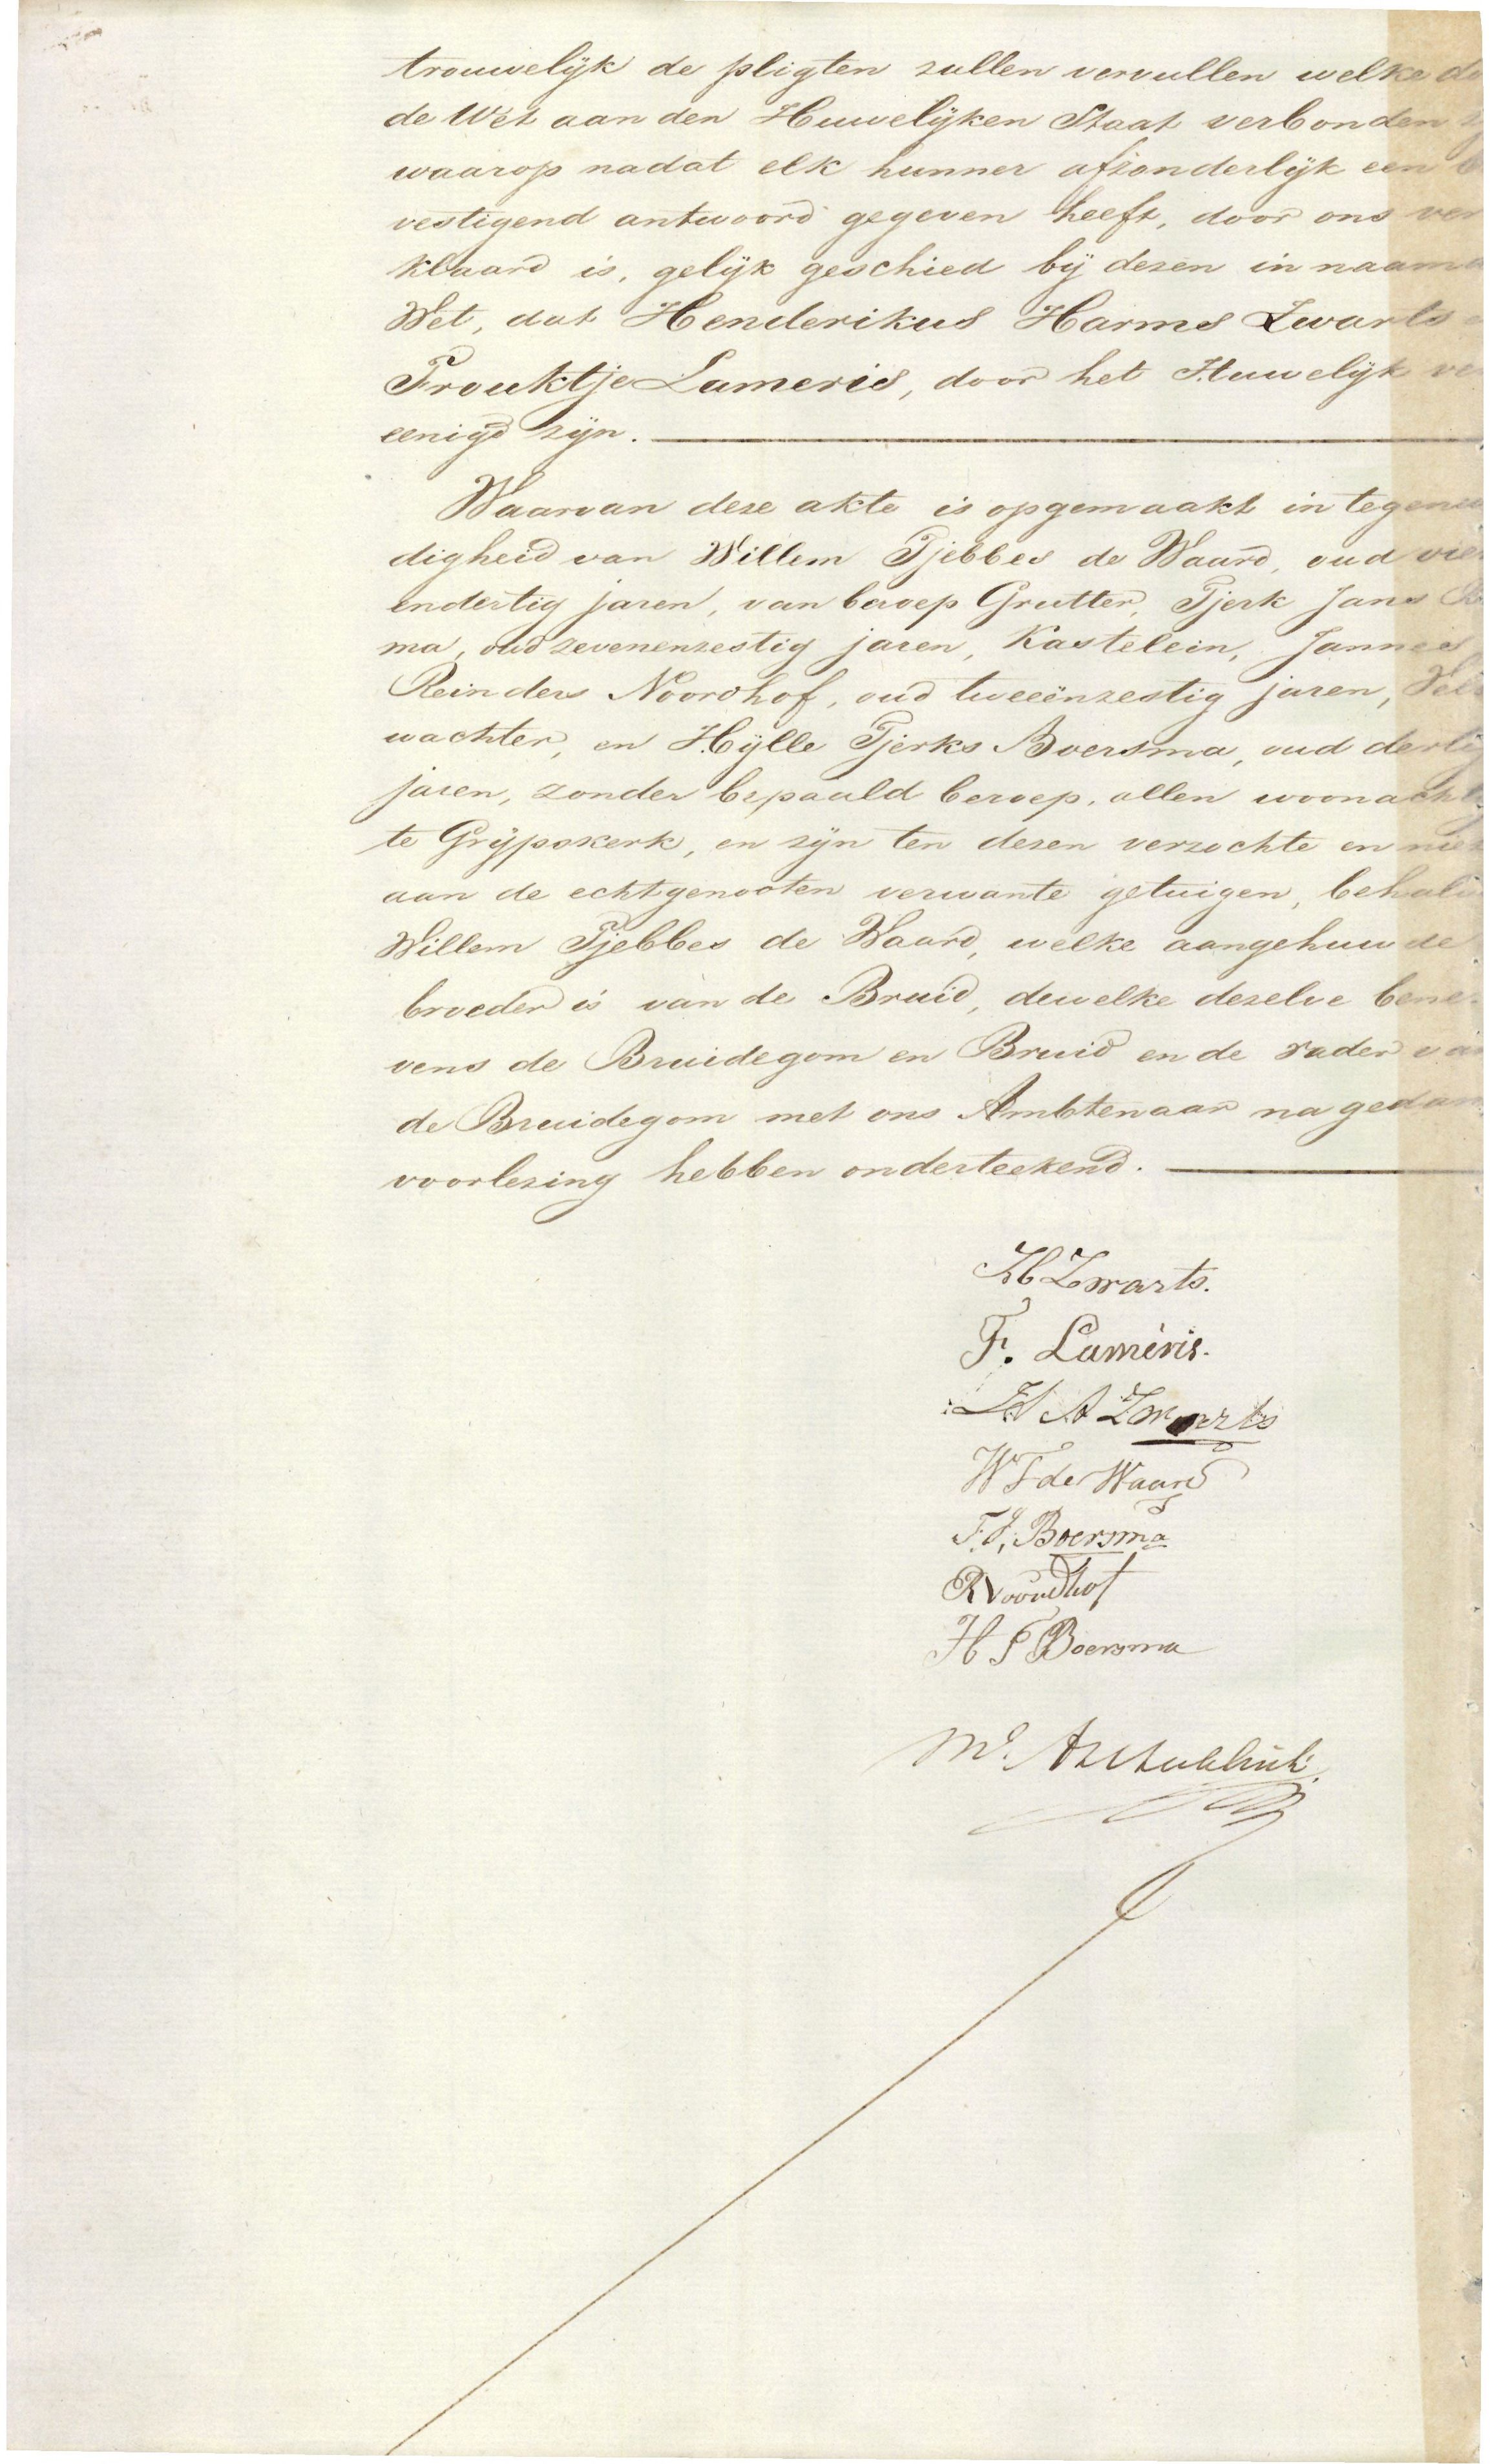 trouwelijk de pligten zullen vervullen welke do
de Wet aan den Huwelijken Staat verbonden
waarop nadat elk hunner afzonderlijk een be
vestigend antwoord gegeven heeft, door ons ver
klaard is, gelijk geschied bij dezen in naam
Wet, dat Henderikus Harms Zwarts
Frouktje Lameris, door het Huwelijk ver
eenigd zijn.
Waarvan deze akte is opgemaakt in tegenw
digheid van Willem Tjebbes de Waard, oud vier
endertig jaren, van beroep Grutter, Tjerk Jans
ma, oud zevenenzestig jaren, Kastelein, Jannes
Reinders Noordhof, oud tweeënzestig jaren, Veld
wachter, en Hijlle Tjerks Boersma, oud dertig
jaren, zonder bepaald beroep, allen woonacht
te Grijpskerk, en zijn ten dezen verzochte en niet
aan de echtgenooten verwante getuigen, behalv
Willem Tjebbes de Waard, welke aangehuwde
broeder is van de Bruid, dewelke dezelve bene-
vens de Bruidegom en Bruid en de vader van
de Bruidegom met ons Ambtenaar na gedan
voorlezing hebben onderteekend.
H Zwarts.
F. Lameris.
H A Zwarts
W T de Waard
T. J. Boersma
R Noordhof
H T Boersma
Mr.